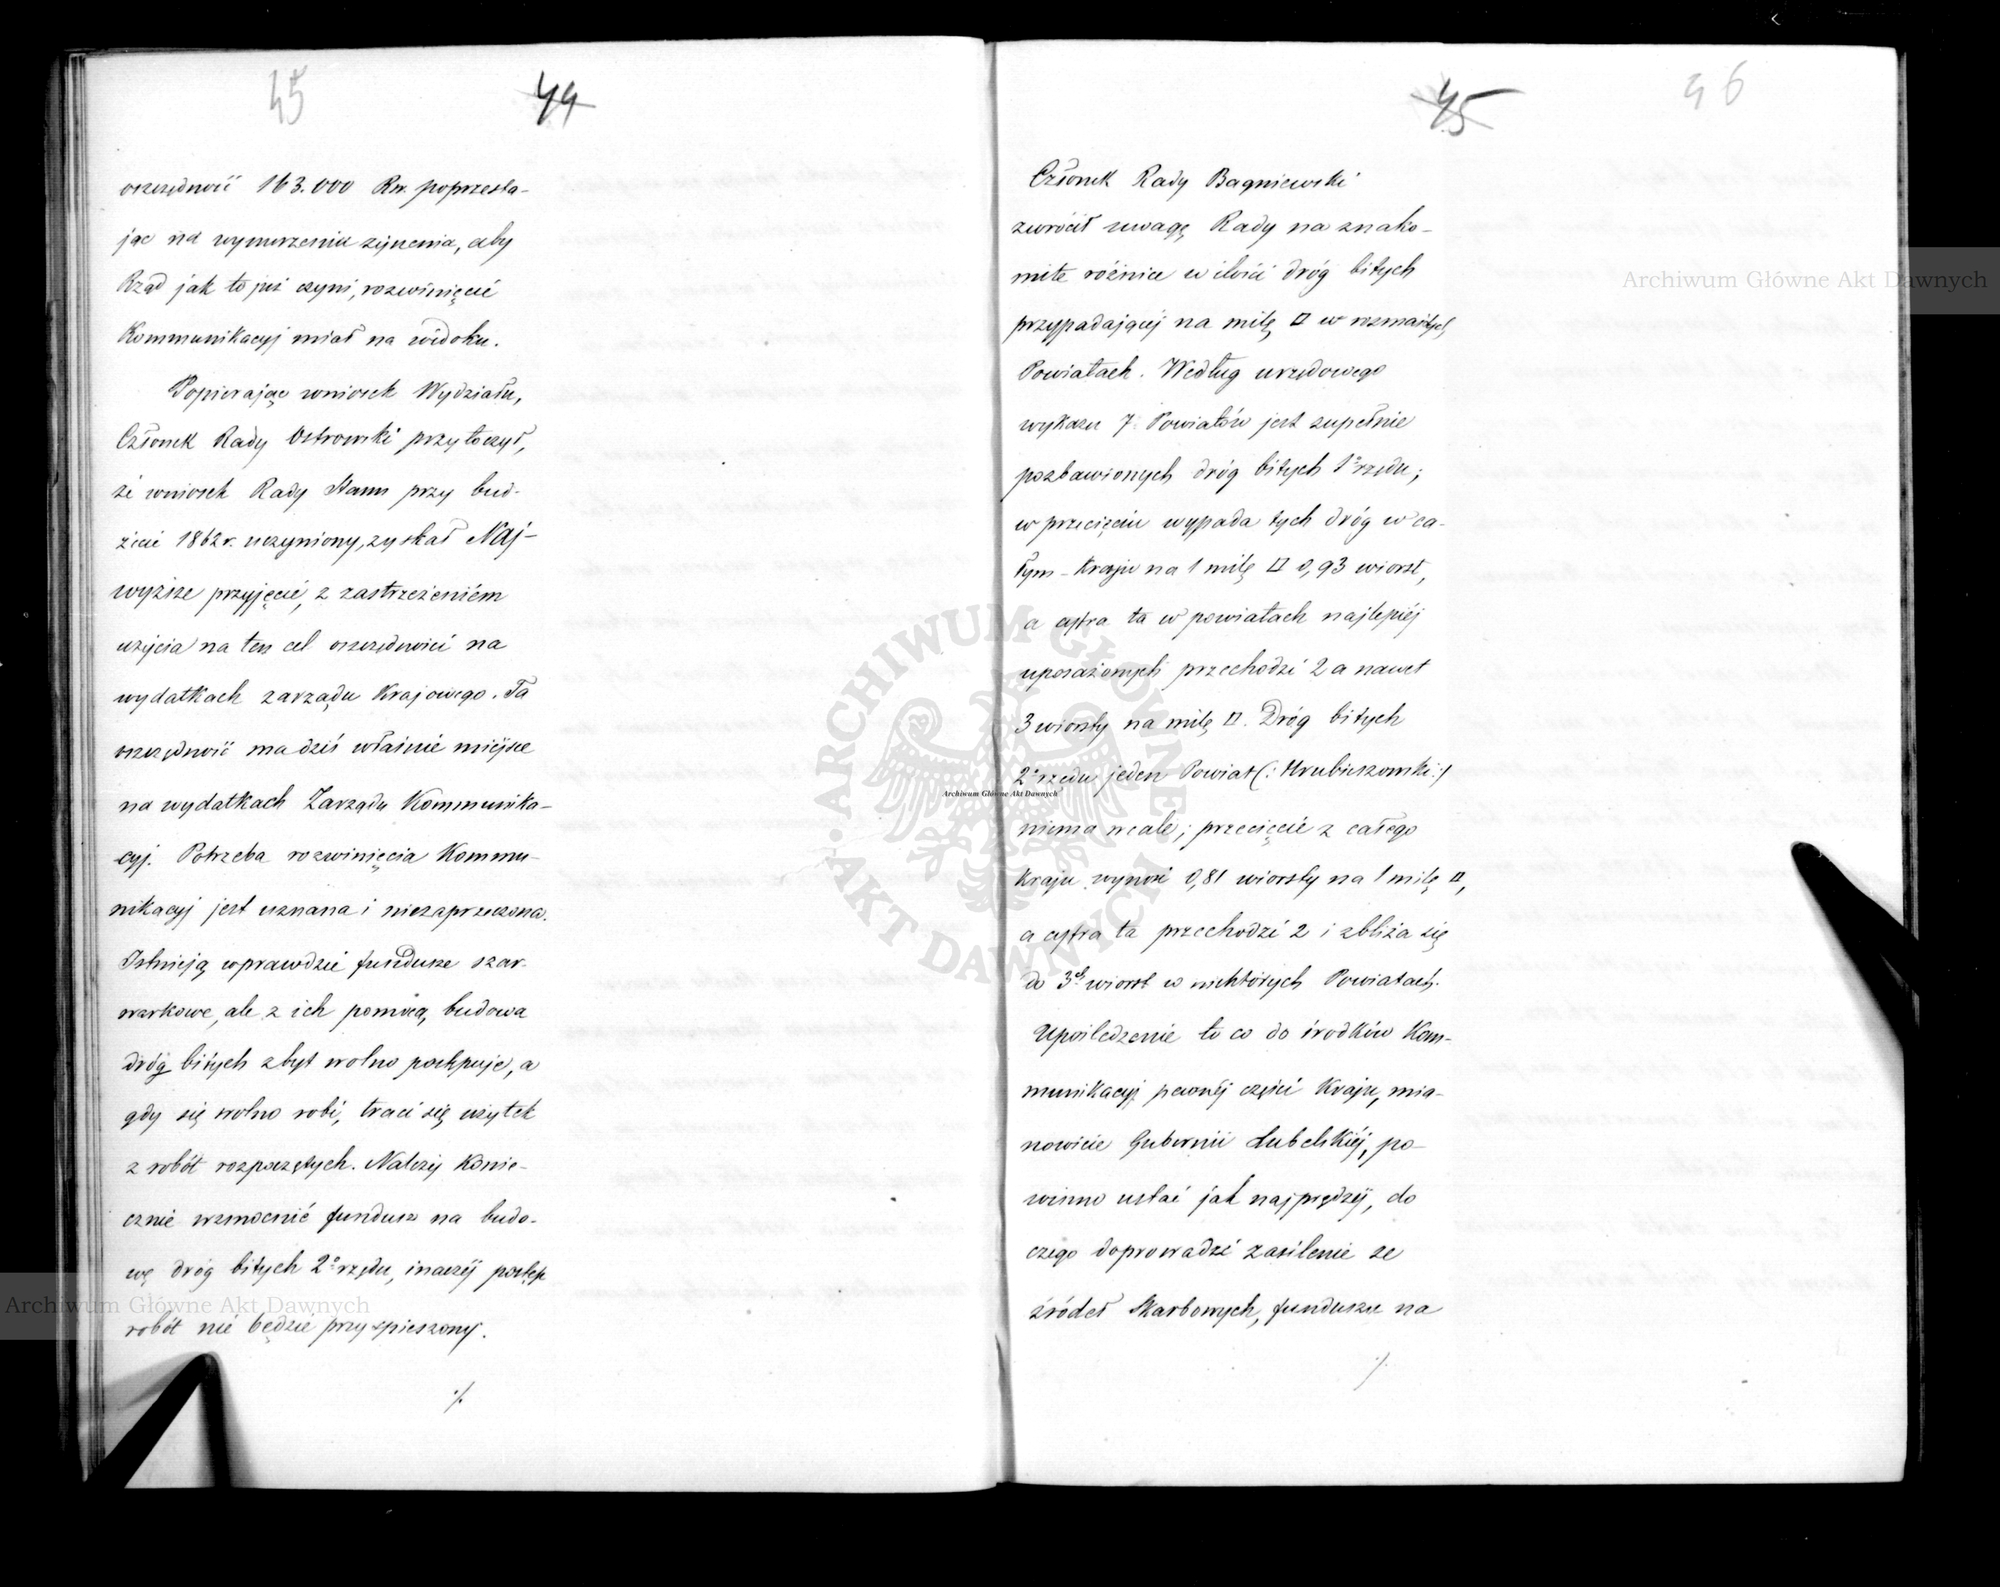 45
44
oszczędność 163.000 Rsr. poprzesta-
jąc na wynurzenia życzenia, aby
Rząd jak to już czyni, rozwinięcie
Kommunikacyj miał na widoku.
Popierając wniosek Wydziału,
Członek Rady Ostrowski przytoczył,
że wniosek Rady Stanu przy bud-
żecie 1862 r. uczyniony, zyskał Naj-
wyższe przyjęcie, z zastrzeżeniem
użycia na ten cel oszczędności na
wydatkach zarządu Krajowego. Ta
oszczędność ma dziś właśnie miejsce
na wydatkach Zarządu Kommunika-
cyj. Potrzeba rozwinięcia Kommu-
nikacyj jest uznana i niezaprzeczona.
Istnieją wprawdzie fundusze szar-
warkowe, ale z ich pomocą, budowa
dróg bitych zbyt wolno postępuje, a
gdy się wolno robi, traci się użytek
z robót rozpoczętych. Należy Konie-
cznie wzmocnić fundusz na budo-
wę dróg bitych 2o rzędu, inaczéj postęp
robót nie będzie przyspieszony.
./.
45
46
Członek Rady Bagniewski
zwrócił uwagę Rady na znako-
mite różnice w ilości dróg bitych
przypadającéj na milę □ w rozmaitych
Powiatach. Według urzędowego
wykazu 7 Powiatów jest zupełnie
pozbawionych dróg bitych 1o rzędu;
w przecięciu wypada tych dróg w ca-
łym Kraju na 1 milę □ 0,93 wiorst,
a cyfra ta w powiatach najlepiéj
uposażonych przechodzi 2 a nawet
3 wiorsty na milę □. Dróg bitych
2o rzędu jeden Powiat (: Hrubieszowski :)
niema wcale; przecięcie z całego
Kraju wynosi 0,81 wiorsty na 1 milę □,
a cyfra ta przechodzi 2 i zbliża się
do 3ch wiorst w niektórych Powiatach.
Upośledzenie to co do środków Kom-
munikacyj pewnéj części Kraju, mia-
nowicie Gubernii Lubelskiéj, po-
winno ustać jak najprędzéj, do
czego doprowadzi zasilenie ze
źródeł Skarbowych, funduszu na
./.
Archiwum Główne Akt Dawnych
Archiwum Główne Akt Dawnych
Archiwum Główne Akt Dawnych
ARCHIWUM GŁÓWNE AKT DAWNYCH